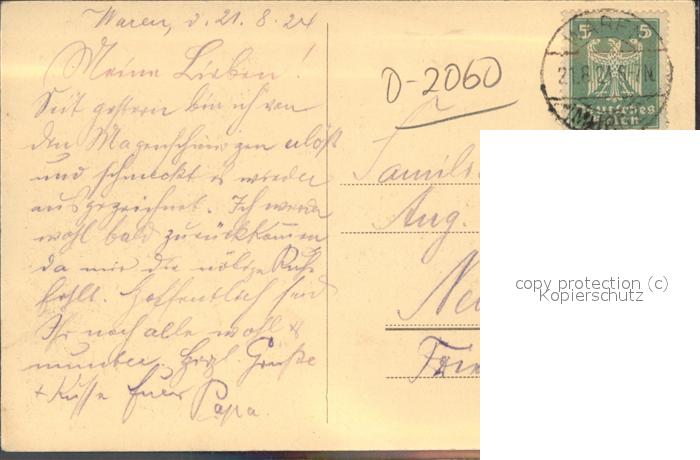 Waren, d. 21. 8. 24
Meine Lieben!
Seit gestern bin ich von
den Magenschmerzen erlöst
und schmeckt es wieder
ausgezeichnet. Ich werde
wohl bald zurückkommen
da mir die nötige Ruhe
fehlt. Hoffentlich seid
Ihr noch alle wohl &
munter. Herzl. Grüße
+ Küsse Euer
Papa.
D-2060
Familie
Aug.
5 5
Deutsches
Reich
WAREN
21.8.24
copy protection (c)
Kopierschutz